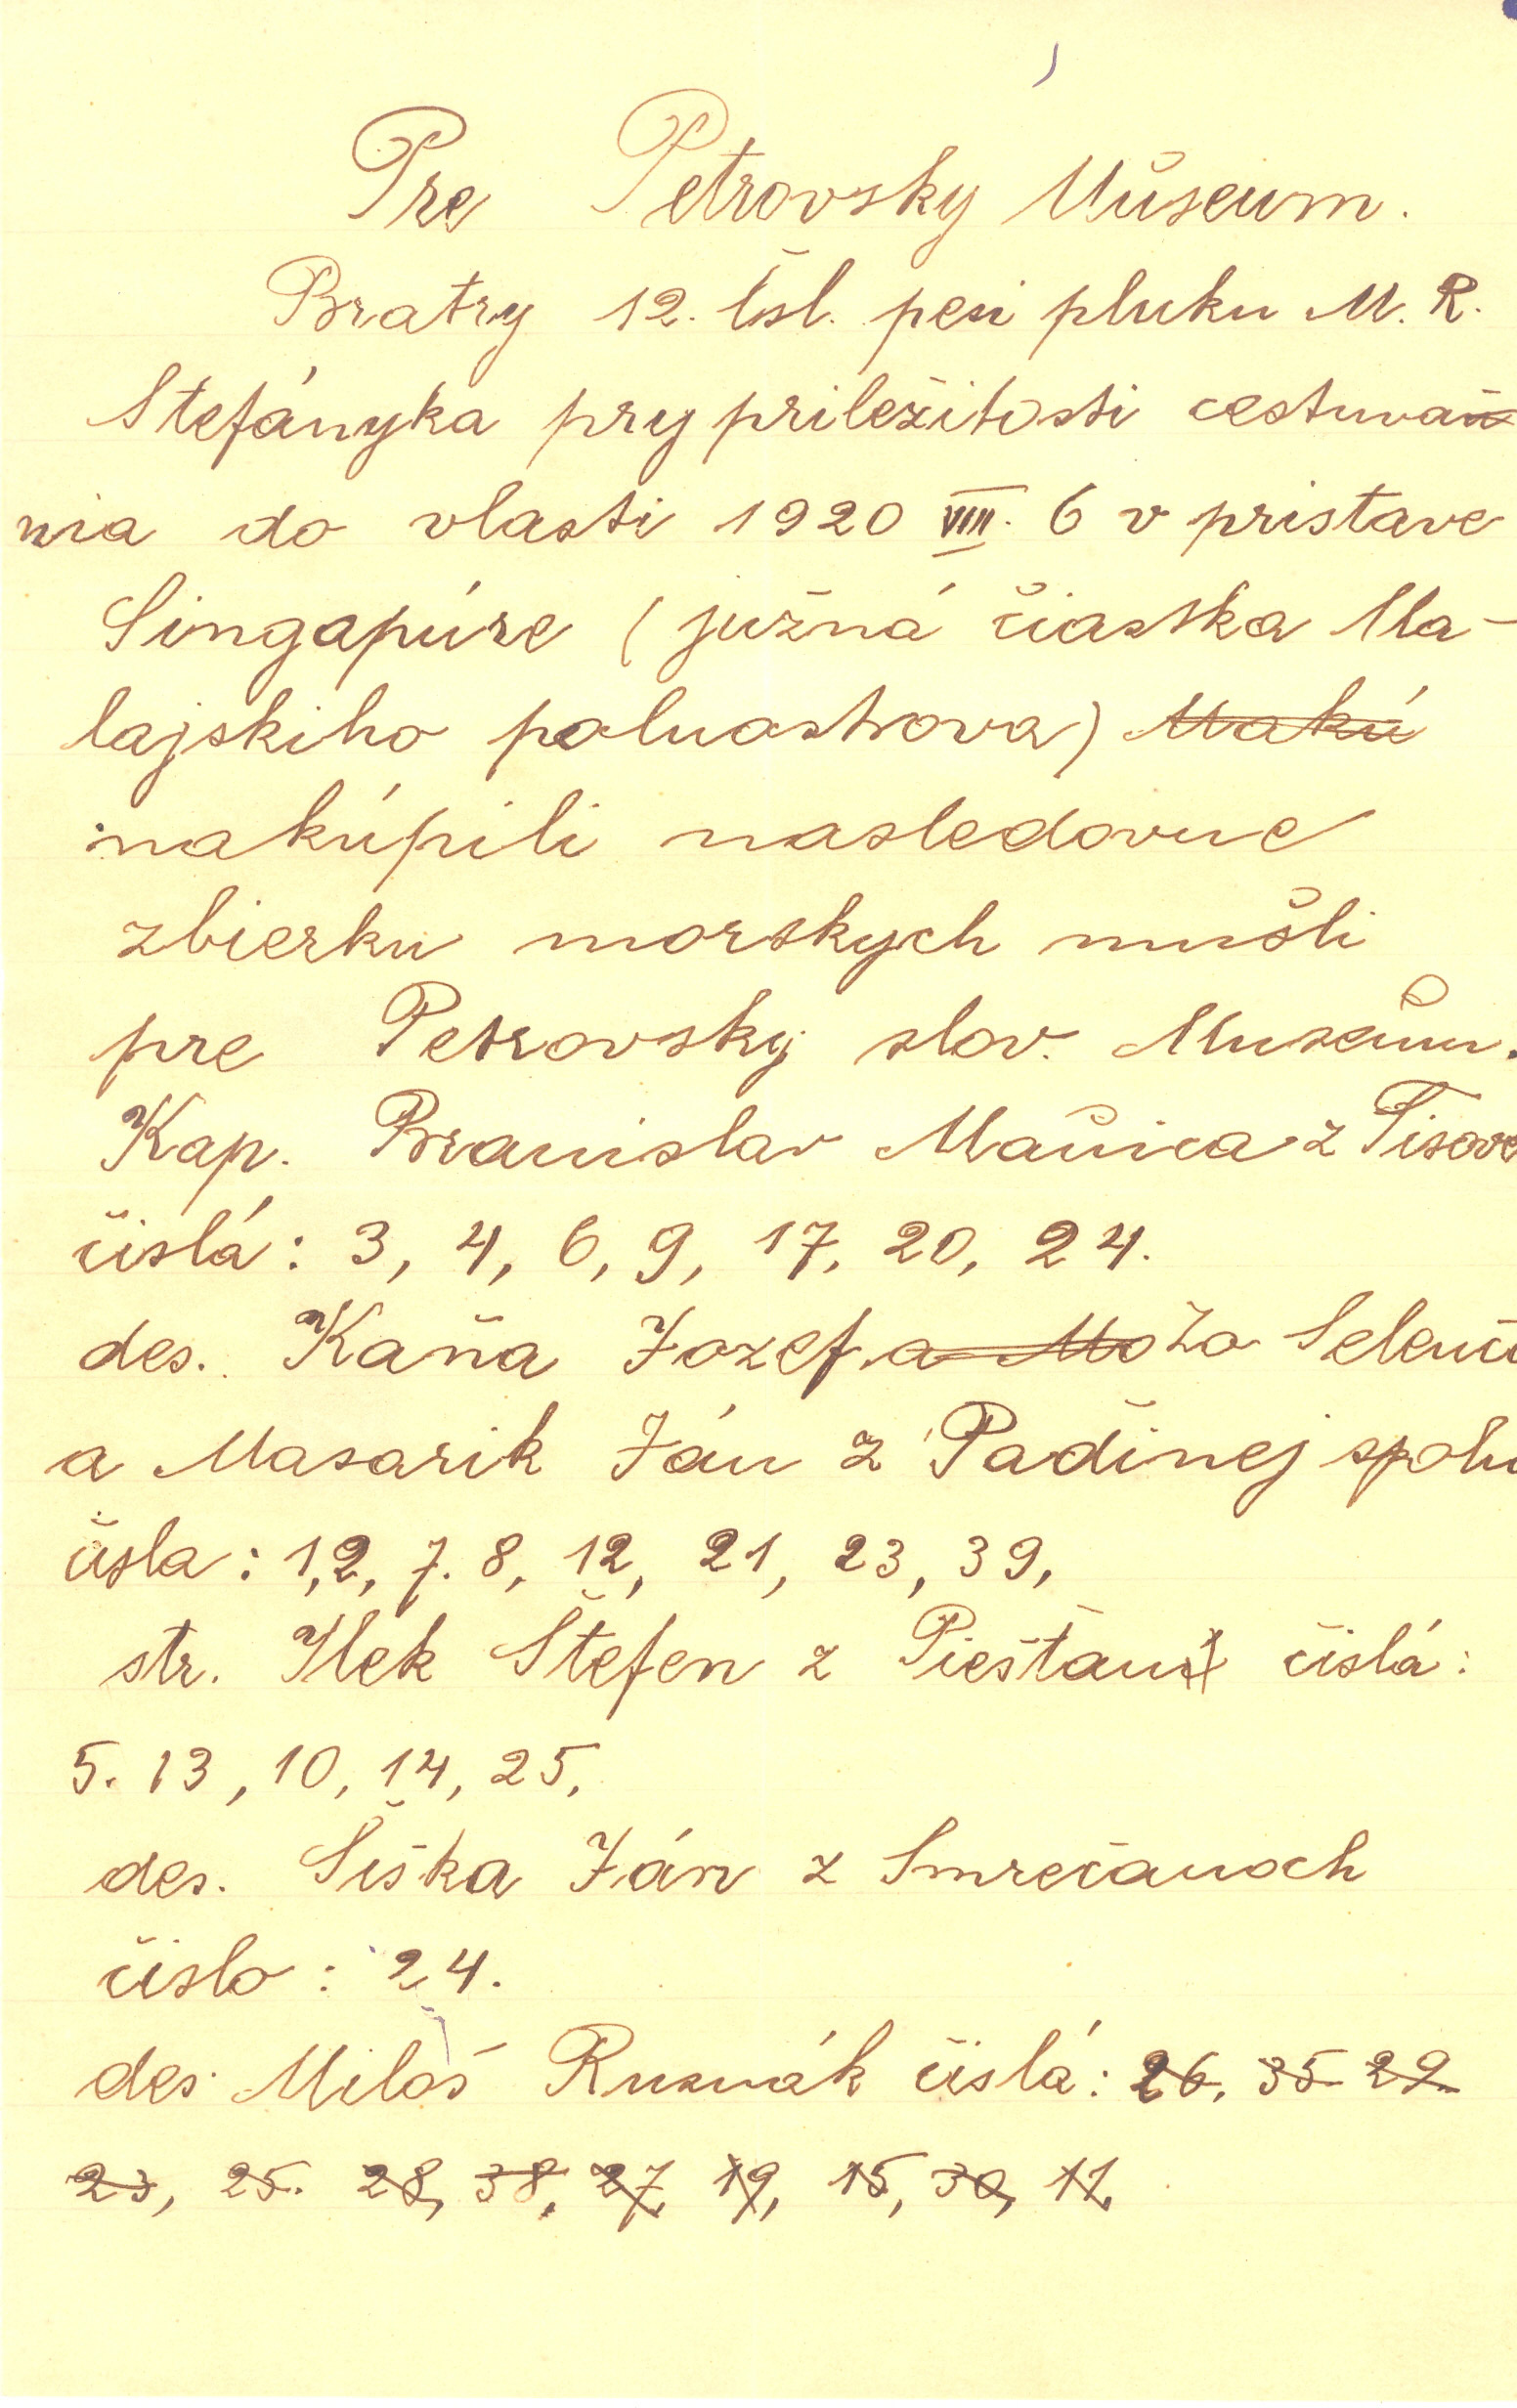 Pre Petrovsky Múseum.
Bratry 12. čsl. peši pluku M. R.
Stefányka pry priležitosti cestuvaň
nia do vlasti 1920 VIII. 6 v pristave
Singapúre (južná čiastka Ma-
lajskiho poluostrova) Makú
nakúpili nasledovne
zbierku morskych mušli
pre Petrovsky slov. Museum.
Kap. Branislav Maňica z Tisove
čislá: 3, 4, 6, 9, 17, 20, 24.
des. Kaňa Jozef a Mo zo Selenč
a Masarik Ján z Padinej spolu
čisla: 1,2, 7. 8, 12, 21, 23, 39,
str. Ilek Štefen z Piešťan čislá:
5. 13, 10, 14, 25,
des. Šiška Ján z Smrečanoch
čislo: 24.
des. Miloš Rusnák čislá: 26, 35 29
23, 25. 28, 38, 27, 19, 15, 30, 11,